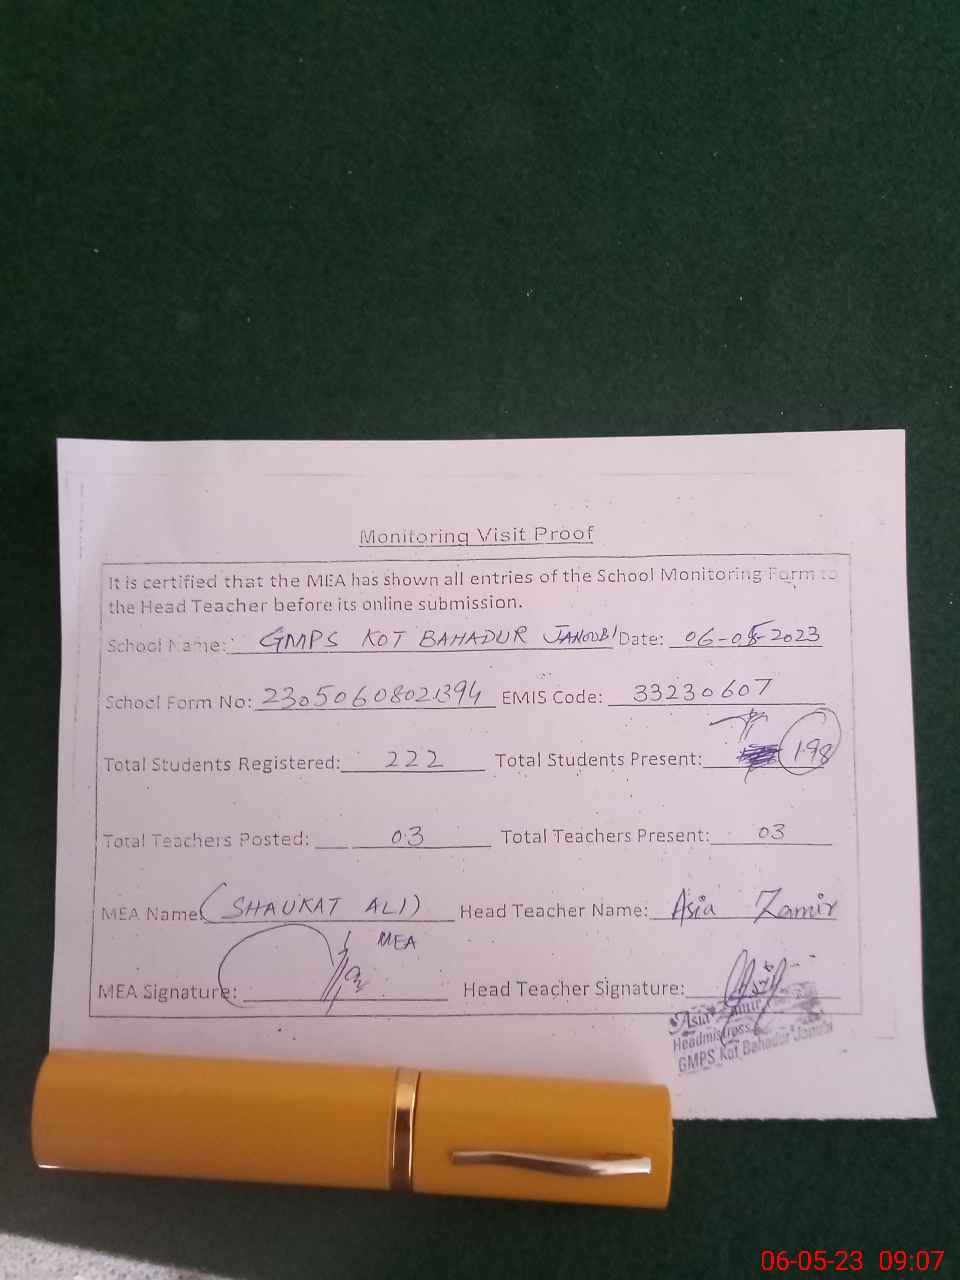 Monitoring Visit Proof
It is certified that the MEA has shown all entries of the School Monitoring Form to
the Head Teacher before its online submission.
School Name: GMPS KOT BAHADUR JANOOBI Date: 06-05-2023
School Form No: 23050608021394 EMIS Code: 33230607
Total Students Registered: 222 Total Students Present: 198
Total Teachers Posted: 03 Total Teachers Present: 03
MEA Name: (SHAUKAT ALI) Head Teacher Name: Asia Zamir
MEA
MEA Signature: Head Teacher Signature:
Asia Zamir
Headmistress
GMPS Kot Bahadur Janubi
06-05-23 09:07